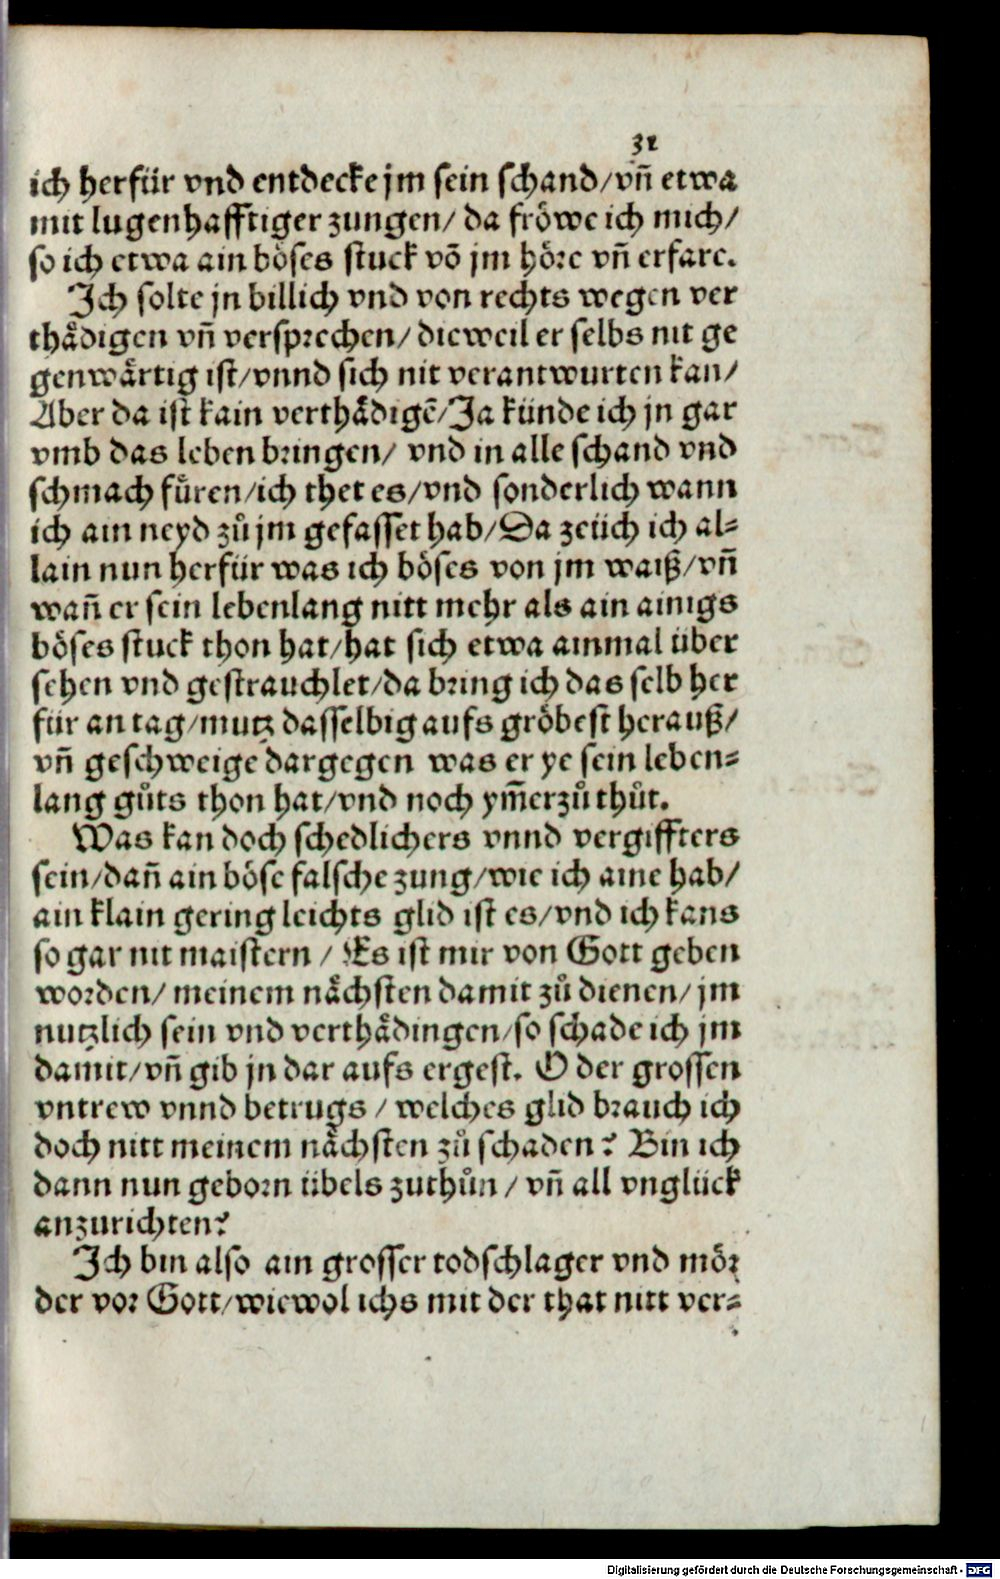 31
ich herfür vnd entdecke jm sein schand/vñ etwa
mit lugenhafftiger zungen/ da fröwe ich mich/
so ich etwa ain böses stuck võ jm höre vñ erfare.
Ich solte jn billich vnd von rechts wegen ver
thådigen vñ versprechen/ dieweil er selbs nit ge
genwårtig ist/vnnd sich nit verantwurten kan/
Aber da ist kain verthådigẽ/Ja künde ich jn gar
vmb das leben bringen/ vnd in alle schand vnd
schmach füren/ich thet es/vnd sonderlich wann
ich ain neyd zů jm gefasset hab/Da zeüch ich al⸗
lain nun herfür was ich böses von jm waiß/vñ
wañ er sein lebenlang nitt mehr als ain ainigs
böses stuck thon hat/hat sich etwa ainmal über
sehen vnd gestrauchlet/da bring ich das selb her
für an tag/mutz dasselbig aufs gröbest herauß/
vñ geschweige dargegen was er ye sein leben⸗
lang gůts thon hat/vnd noch ym̃erzů thůt.
Was kan doch schedlichers vnnd vergiffters
sein/dañ ain böse falsche zung/wie ich aine hab/
ain klain gering leichts glid ist es/vnd ich kans
so gar nit maistern / Es ist mir von Gott geben
worden/ meinem nächsten damit zů dienen/ jm
nutzlich sein vnd verthådingen/so schade ich jm
damit/vñ gib jn dar aufs ergest. O der grossen
vntrew vnnd betrugs / welches glid brauch ich
doch nitt meinem nächsten zů schaden? Bin ich
dann nun geborn übels zuthůn / vñ all vnglück
anzurichten?
Ich bin also ain grosser todschlager vnd mör
der vor Gott/wiewol ichs mit der that nitt ver⸗
Digitalisierung gefördert durch die Deutsche Forschungsgemeinschaft - DFG